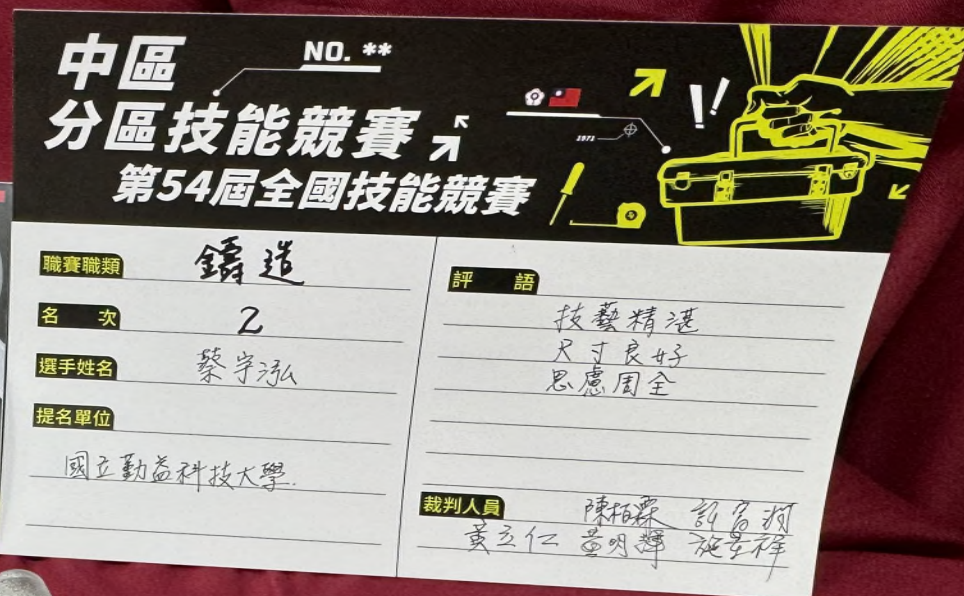 中區
NO. **
分區技能競賽
第54屆全國技能競賽
1971
!!
職賽職類 鑄造
名次 2
選手姓名 蔡宇泓
提名單位
國立勤益科技大學
評語
技藝精湛
尺寸良好
思慮周全
裁判人員 陳柏霖
黃立仁 黃明輝